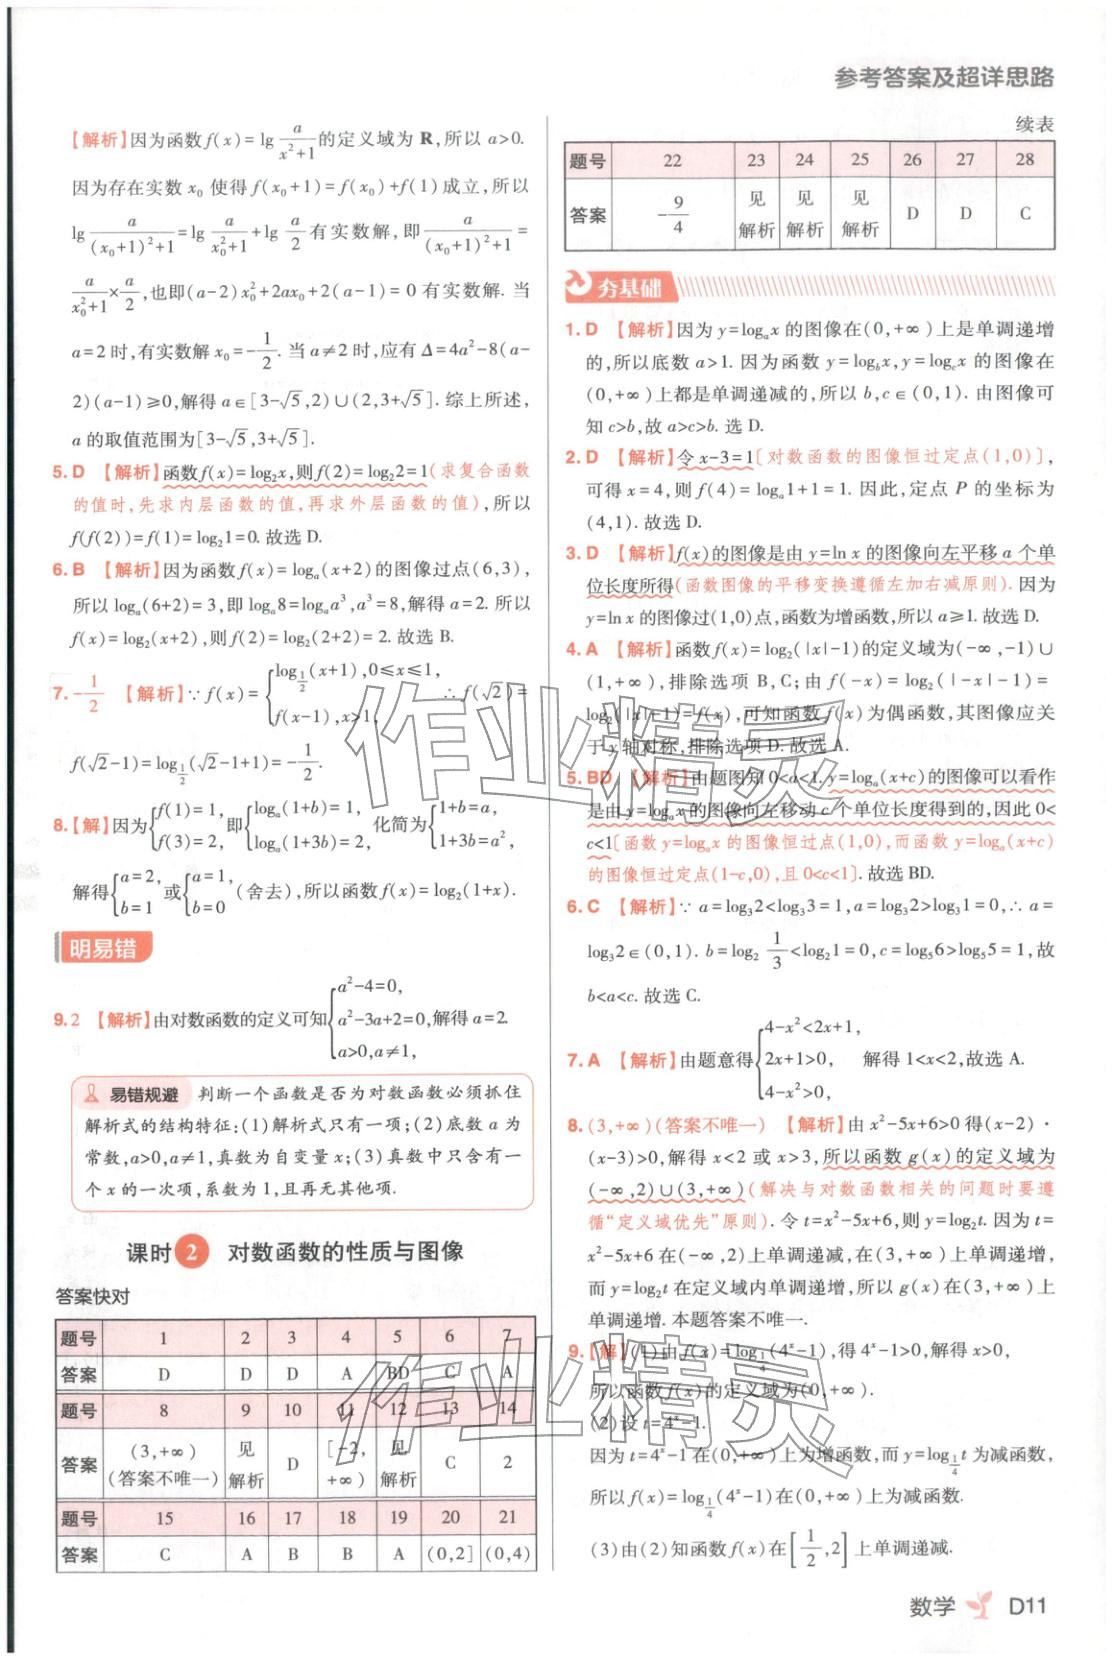 参考答案及超详思路
【解析】因为函数f(x)=lg a/(x²+1)的定义域为 R,所以 a>0.
因为存在实数 x₀ 使得 f(x₀+1)=f(x₀)+f(1)成立,所以
lg a/((x₀+1)²+1)=lg a/(x₀²+1)+lg a/2 有实数解,即 a/((x₀+1)²+1)=
a/(x₀²+1)×a/2,也即(a-2)x₀²+2ax₀+2(a-1)=0 有实数解. 当
a=2 时,有实数解 x₀=-1/2. 当 a≠2 时,应有 Δ=4a²-8(a-
2)(a-1)≥0,解得 a∈[3-√5,2)∪(2,3+√5]. 综上所述,
a 的取值范围为[3-√5,3+√5].
5. D 【解析】函数f(x)=log₂x,则f(2)=log₂2=1(求复合函数
的值时,先求内层函数的值,再求外层函数的值),所以
f(f(2))=f(1)=log₂1=0. 故选 D.
6. B 【解析】因为函数 f(x)=logₐ(x+2)的图像过点(6,3),
所以 logₐ(6+2)=3,即 logₐ8=logₐa³,a³=8,解得 a=2. 所以
f(x)=log₂(x+2),则f(2)=log₂(2+2)=2. 故选 B.
7. -1/2 【解析】∵f(x)={log_{1/2}(x+1),0≤x≤1, f(x-1),x>1, ∴f(√2)=
f(√2-1)=log_{1/2}(√2-1+1)=-1/2.
8. 【解】因为{f(1)=1, f(3)=2, 即{logₐ(1+b)=1, logₐ(1+3b)=2, 化简为{1+b=a, 1+3b=a²,
解得{a=2, b=1 或{a=1, b=0 (舍去),所以函数f(x)=log₂(1+x).
明易错
9. 2 【解析】由对数函数的定义可知{a²-4=0, a²-3a+2=0, a>0,a≠1, 解得 a=2.
易错规避 判断一个函数是否为对数函数必须抓住
解析式的结构特征:(1)解析式只有一项;(2)底数 a 为
常数,a>0,a≠1,真数为自变量 x;(3)真数中只含有一
个 x 的一次项,系数为 1,且再无其他项.
课时 2 对数函数的性质与图像
答案快对
题号 1 2 3 4 5 6 7
答案 D D D A BD C A
题号 8 9 10 11 12 13 14
答案 (3,+∞)(答案不唯一) 见解析 D [-2,+∞) 见解析 C 2
题号 15 16 17 18 19 20 21
答案 C A B B A (0,2] (0,4)
续表
题号 22 23 24 25 26 27 28
答案 -9/4 见解析 见解析 见解析 D D C
夯基础
1. D 【解析】因为 y=logₐx 的图像在(0,+∞)上是单调递增
的,所以底数 a>1. 因为函数 y=log_b x,y=log_c x 的图像在
(0,+∞)上都是单调递减的,所以 b,c∈(0,1). 由图像可
知 c>b,故 a>c>b. 选 D.
2. D 【解析】令 x-3=1[对数函数的图像恒过定点(1,0)],
可得 x=4,则 f(4)=logₐ1+1=1. 因此,定点 P 的坐标为
(4,1). 故选 D.
3. D 【解析】f(x)的图像是由 y=ln x 的图像向左平移 a 个单
位长度所得(函数图像的平移变换遵循左加右减原则). 因为
y=ln x 的图像过(1,0)点,函数为增函数,所以 a≥1. 故选 D.
4. A 【解析】函数 f(x)=log₂(|x|-1)的定义域为(-∞,-1)∪
(1,+∞),排除选项 B,C;由 f(-x)=log₂(|-x|-1)=
log₂(|x|-1)=f(x),可知函数 f(x)为偶函数,其图像应关
于 y 轴对称,排除选项 D. 故选 A.
5. BD 【解析】由题图知 0<a<1. y=logₐ(x+c)的图像可以看作
是由 y=logₐx 的图像向左移动 c 个单位长度得到的,因此 0<
c<1[函数 y=logₐx 的图像恒过定点(1,0),而函数 y=logₐ(x+c)
的图像恒过定点(1-c,0),且 0<c<1]. 故选 BD.
6. C 【解析】∵a=log₃2<log₃3=1,a=log₃2>log₃1=0,∴a=
log₃2∈(0,1). b=log₂ 1/3<log₂1=0,c=log₅6>log₅5=1,故
b<a<c. 故选 C.
7. A 【解析】由题意得{4-x²<2x+1, 2x+1>0, 4-x²>0, 解得 1<x<2,故选 A.
8. (3,+∞)(答案不唯一) 【解析】由 x²-5x+6>0 得(x-2)·
(x-3)>0,解得 x<2 或 x>3,所以函数 g(x)的定义域为
(-∞,2)∪(3,+∞)(解决与对数函数相关的问题时要遵
循“定义域优先”原则). 令 t=x²-5x+6,则 y=log₂t. 因为 t=
x²-5x+6 在(-∞,2)上单调递减,在(3,+∞)上单调递增,
而 y=log₂t 在定义域内单调递增,所以 g(x)在(3,+∞)上
单调递增. 本题答案不唯一.
9. 【解】(1)由f(x)=log_{1/4}(4ˣ-1),得 4ˣ-1>0,解得 x>0,
所以函数 f(x)的定义域为(0,+∞).
(2)设 t=4ˣ-1.
因为 t=4ˣ-1 在(0,+∞)上为增函数,而 y=log_{1/4}t 为减函数,
所以 f(x)=log_{1/4}(4ˣ-1)在(0,+∞)上为减函数.
(3)由(2)知函数 f(x)在[1/2,2]上单调递减.
作业精灵
作业精灵
数学 D11